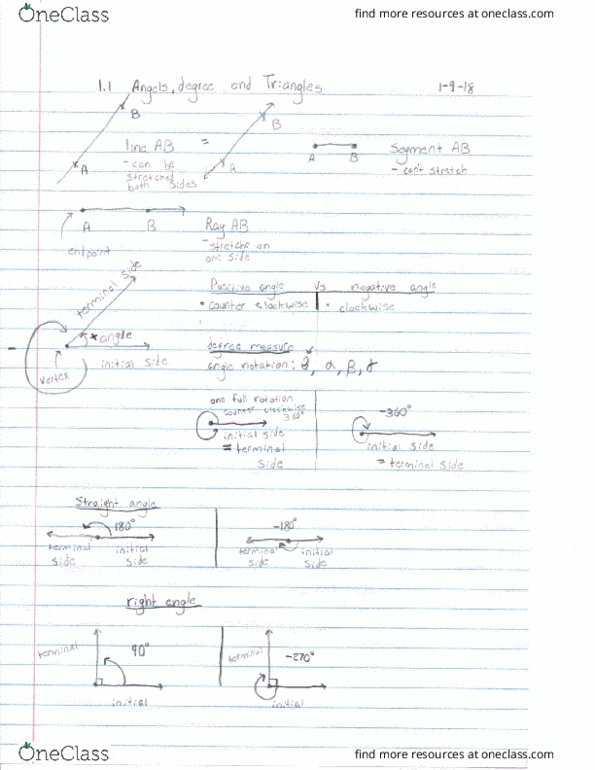 OneClass
find more resources at oneclass.com
1.1 Angels, degree and Triangles
1-9-18
B
A
line AB
- can be
stretched
both sides
=
B
A
A B
Segment AB
- can't stretch
A B
endpoint
Ray AB
- stretche on
one side
terminal side
angle
initial side
vertex
-
Positive angle vs negative angle
• counter clockwise • clockwise
degree measure
angle notation: θ, α, β, γ
one full rotation
counter clockwise
360°
initial side
= terminal
side
-360°
initial side
= terminal side
Straight angle
180°
terminal side
initial side
-180°
terminal side
initial side
right angle
terminal
90°
initial
terminal
-270°
initial
OneClass
find more resources at oneclass.com